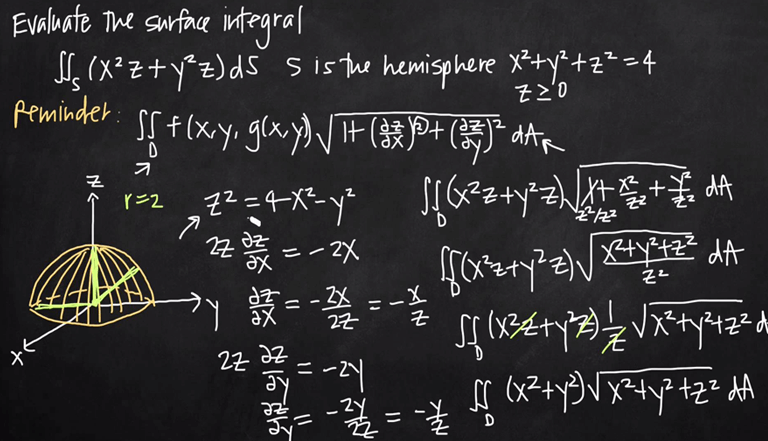 Evaluate the surface integral
∬_S (x²z+y²z)dS S is the hemisphere x²+y²+z²=4
z≥0
Reminder: ∬_D f(x,y,g(x,y)√(1+(∂z/∂x)²+(∂z/∂y)²) dA
z
r=2
y
x
z²=4-x²-y²
2z ∂z/∂x = -2x
∂z/∂x = -2x/2z = -x/z
2z ∂z/∂y = -2y
∂z/∂y = -2y/2z = -y/z
∬_D (x²z+y²z)√(1+x²/z²+y²/z²) dA
z²/z²
∬_D (x²z+y²z)√((x²+y²+z²)/z²) dA
∬_D (x²z+y²z) 1/z √(x²+y²+z²) d
∬_D (x²+y²)√(x²+y²+z²) dA